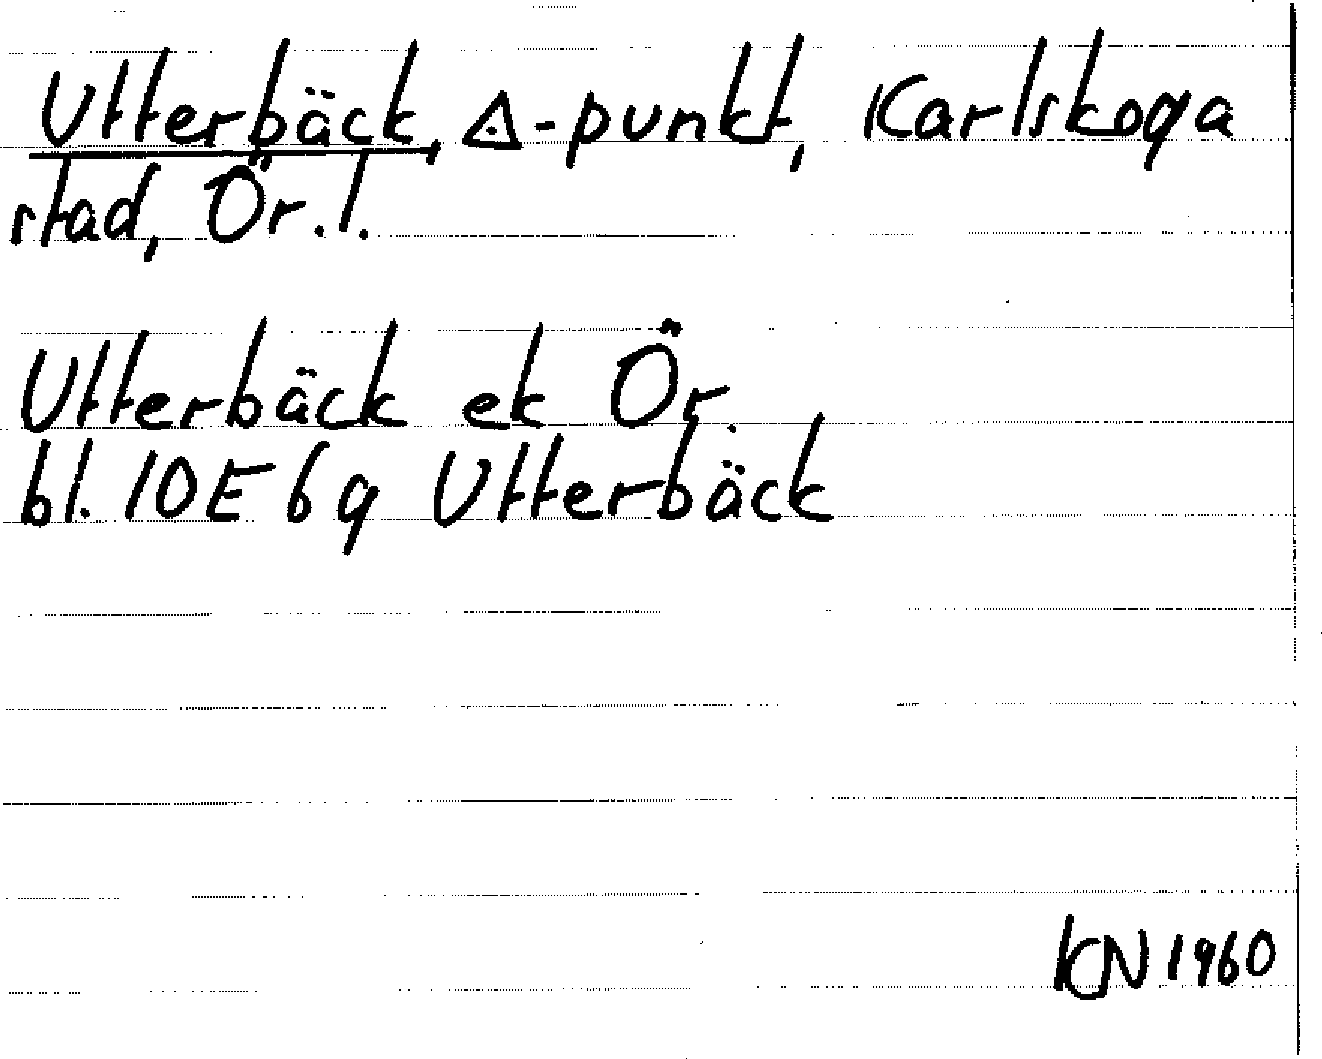 Utterbäck, △-punkt, Karlskoga
stad, Ör. l.
Utterbäck ek Ör.
bl. 10E 6g Utterbäck
KN 1960